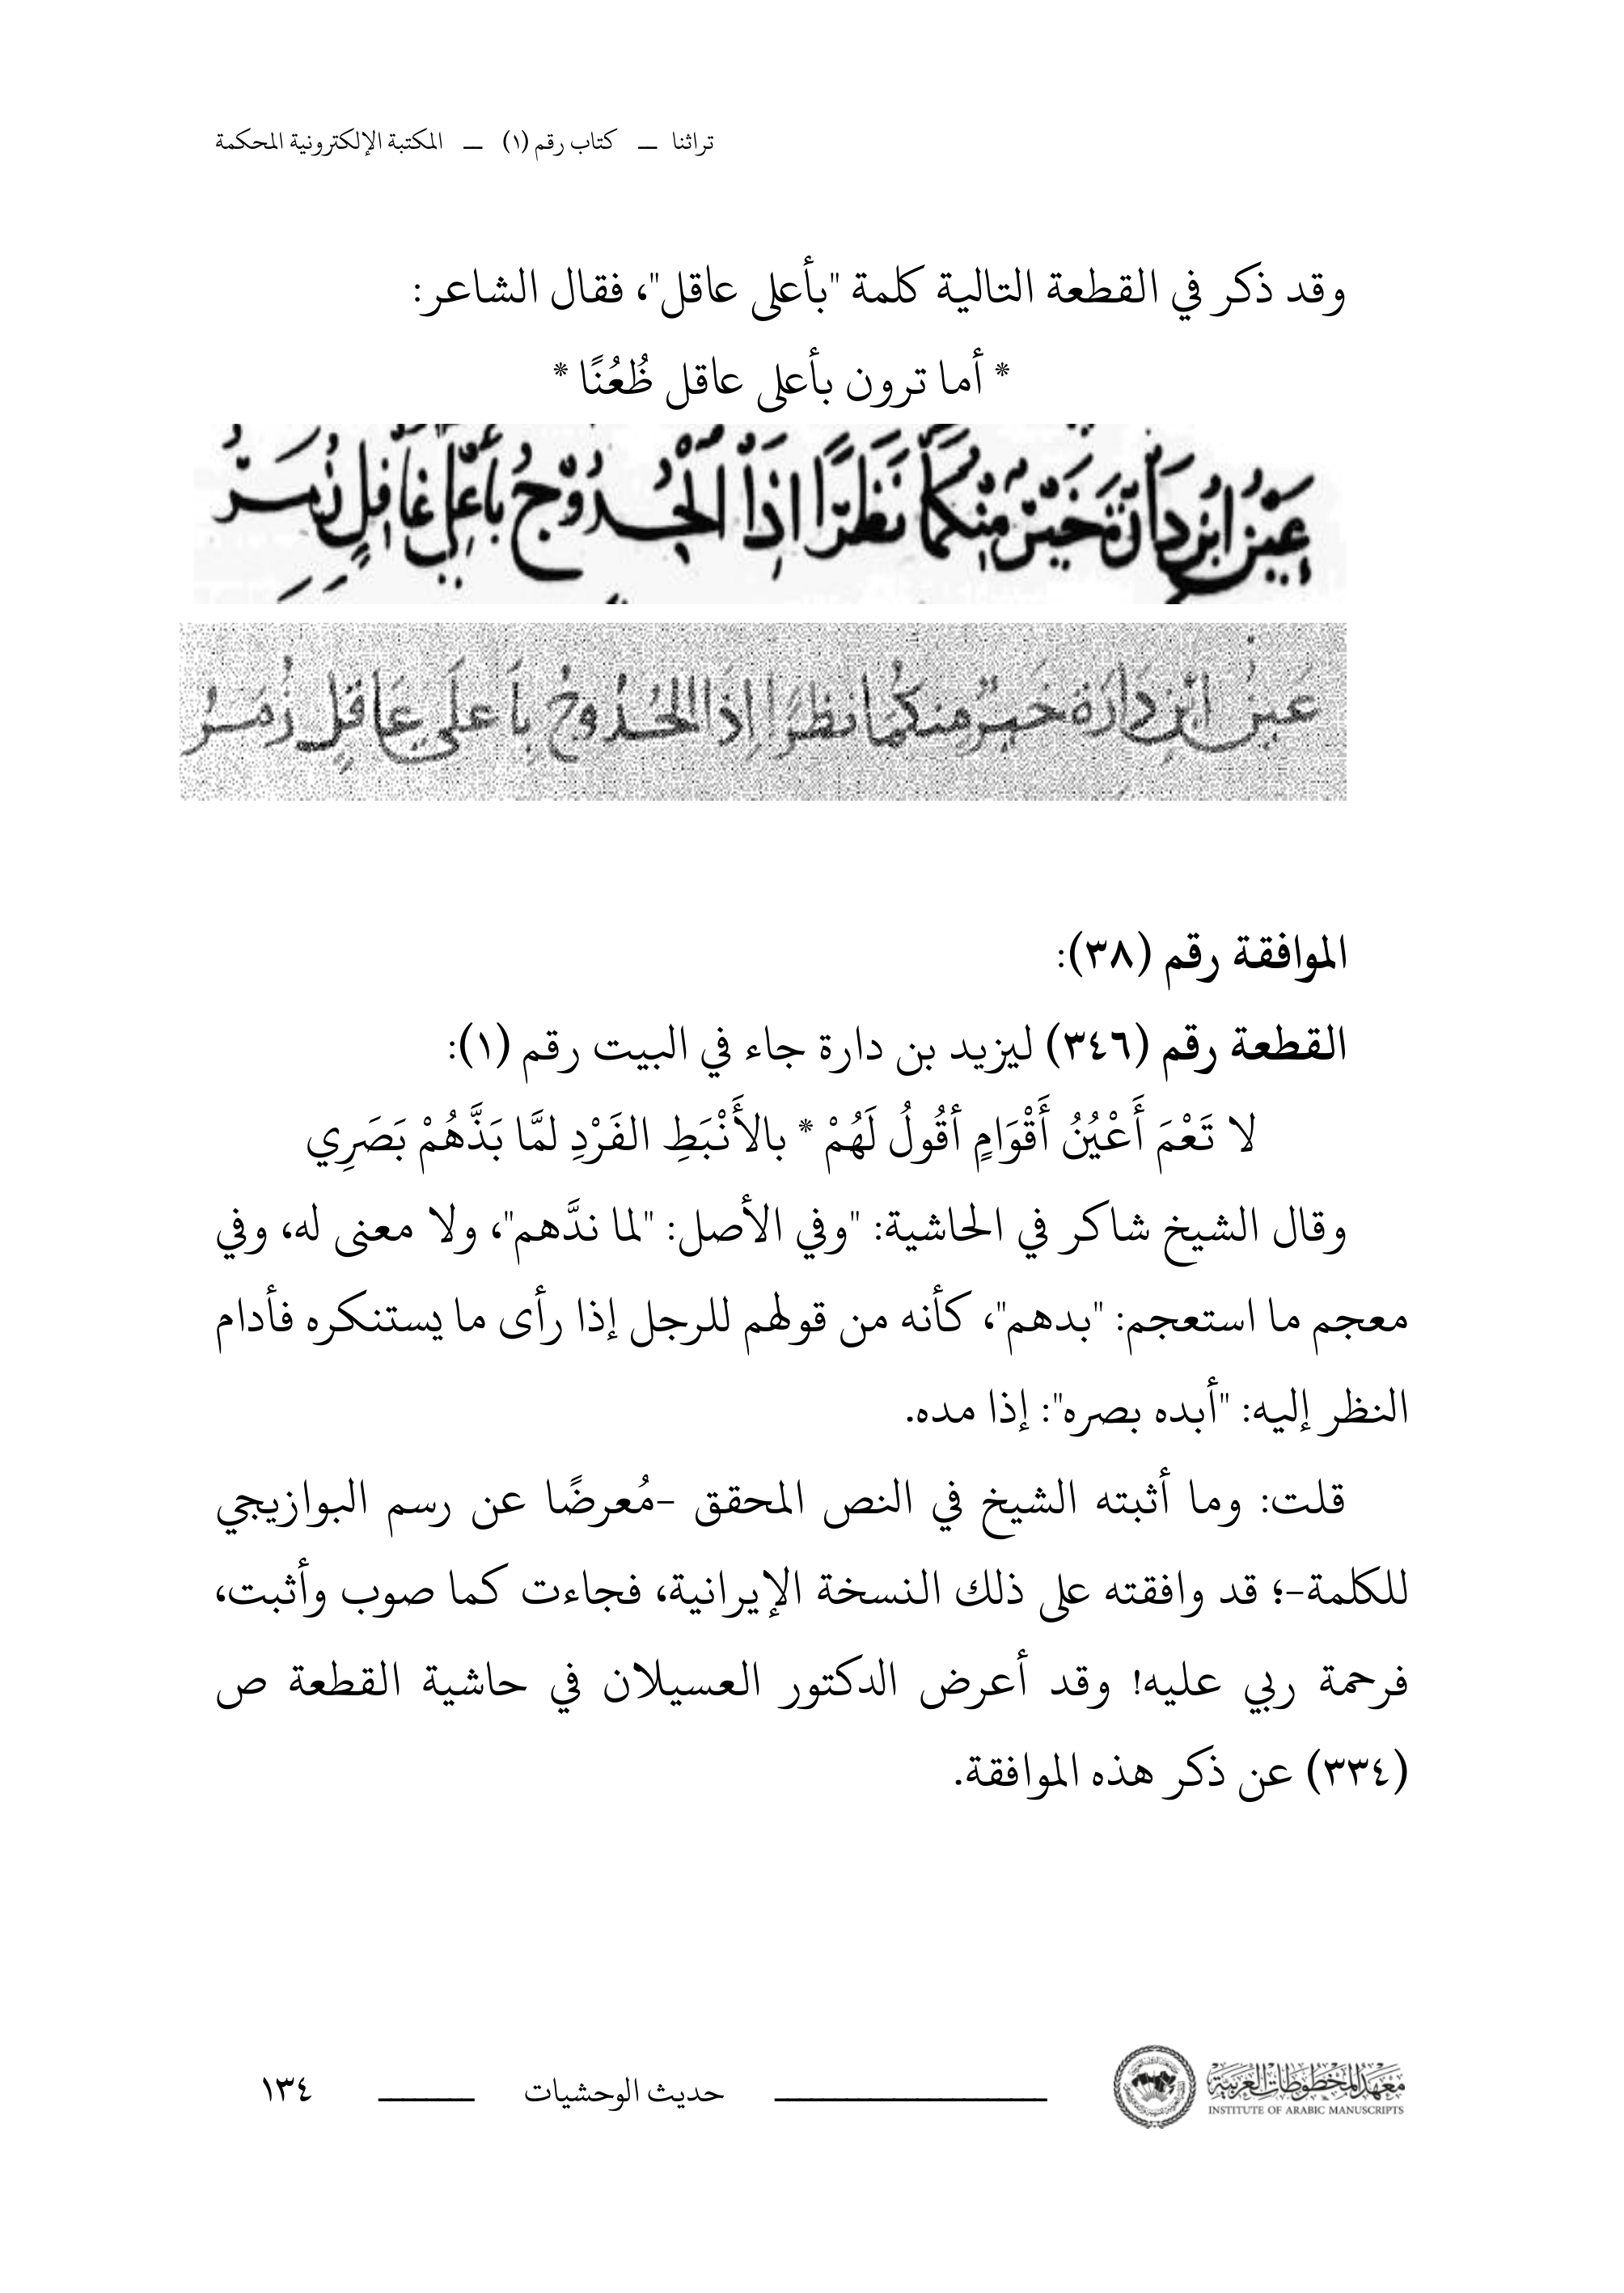 تراثنا — كتاب رقم (١) — المكتبة الإلكترونية المحكمة
وقد ذكر في القطعة التالية كلمة "بأعلى عاقل"، فقال الشاعر:
* أما ترون بأعلى عاقل ظُعُنًا *
عين ابن دارة خير منكما نظرا إذا الحدوج بأعلى غافل زمر
عين ابن دارة خير منكما نظرا إذا الحدوج بأعلى عاقل زمر
الموافقة رقم (٣٨):
القطعة رقم (٣٤٦) ليزيد بن دارة جاء في البيت رقم (١):
لا تَعْمَ أَعْيُنُ أَقْوَامٍ أقُولُ لَهُمْ * بالأَنْبَطِ الفَرْدِ لمَّا بَذَّهُمْ بَصَرِي
وقال الشيخ شاكر في الحاشية: "وفي الأصل: "لما ندَّهم"، ولا معنى له، وفي
معجم ما استعجم: "بدهم"، كأنه من قولهم للرجل إذا رأى ما يستنكره فأدام
النظر إليه: "أبده بصره": إذا مده.
قلت: وما أثبته الشيخ في النص المحقق -مُعرضًا عن رسم البوازيجي
للكلمة-؛ قد وافقته على ذلك النسخة الإيرانية، فجاءت كما صوب وأثبت،
فرحمة ربي عليه! وقد أعرض الدكتور العسيلان في حاشية القطعة ص
(٣٣٤) عن ذكر هذه الموافقة.
معهد المخطوطات العربية
INSTITUTE OF ARABIC MANUSCRIPTS
حديث الوحشيات
١٣٤